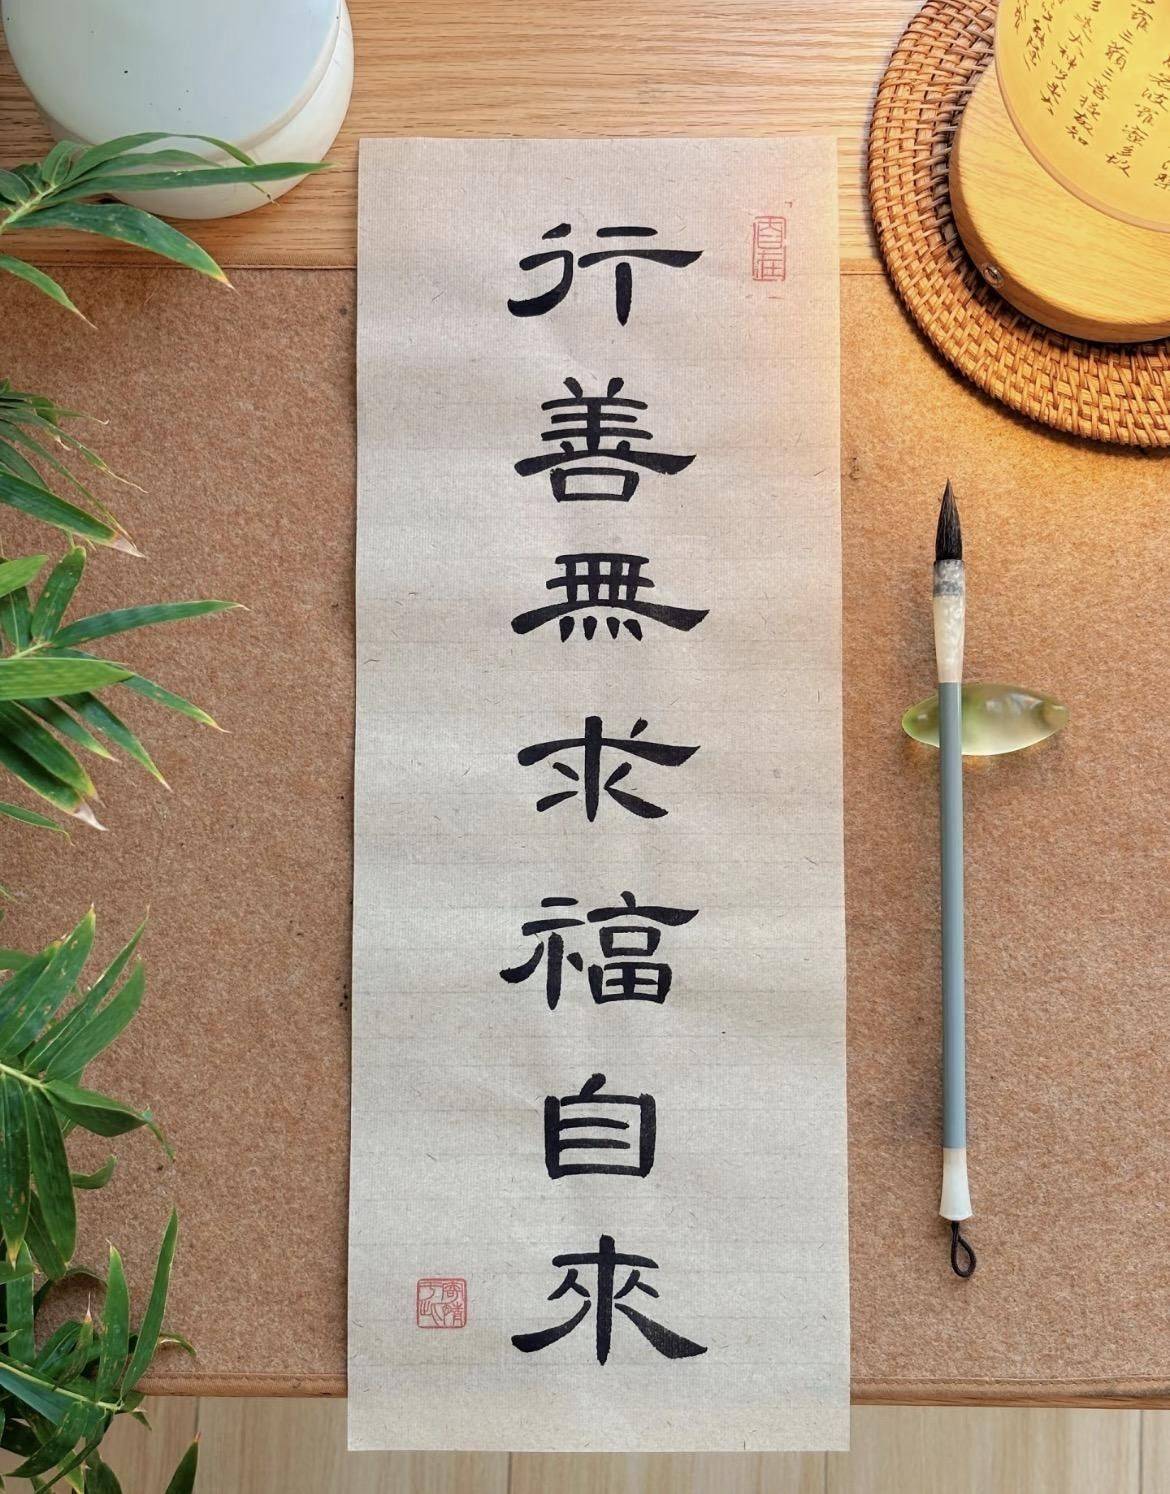 行善無求福自來